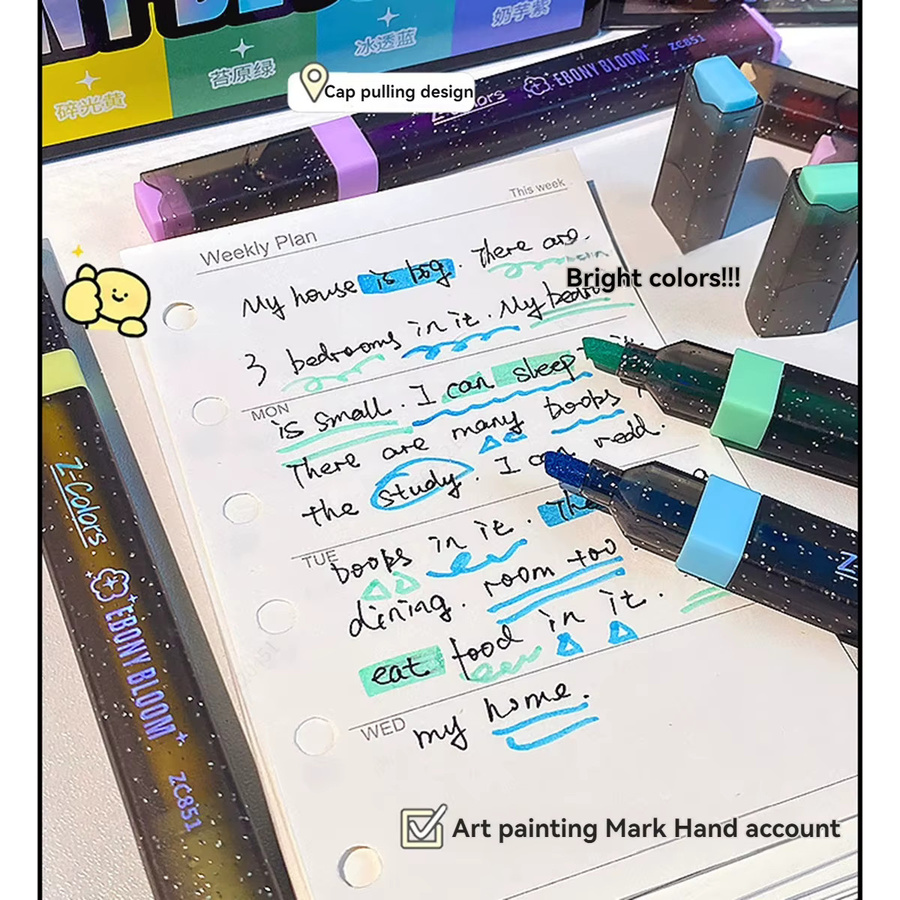 苔原绿
冰透蓝
奶芋紫
碎光黄
Cap pulling design
Z-Colors
EBONY BLOOM
ZC851
This week
Weekly Plan
My house is big. There are
Bright colors!!!
3 bedrooms in it. My bedro
MON
is small. I can sleep
There are many books
the study. I can read.
TUE
books in it. The
dining. room too
eat food in it.
WED
my home.
Z-Colors
EBONY BLOOM
ZC851
Art painting Mark Hand account